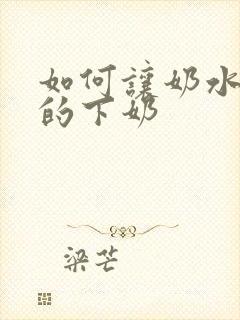 如何讓奶水
的下奶
梁芒